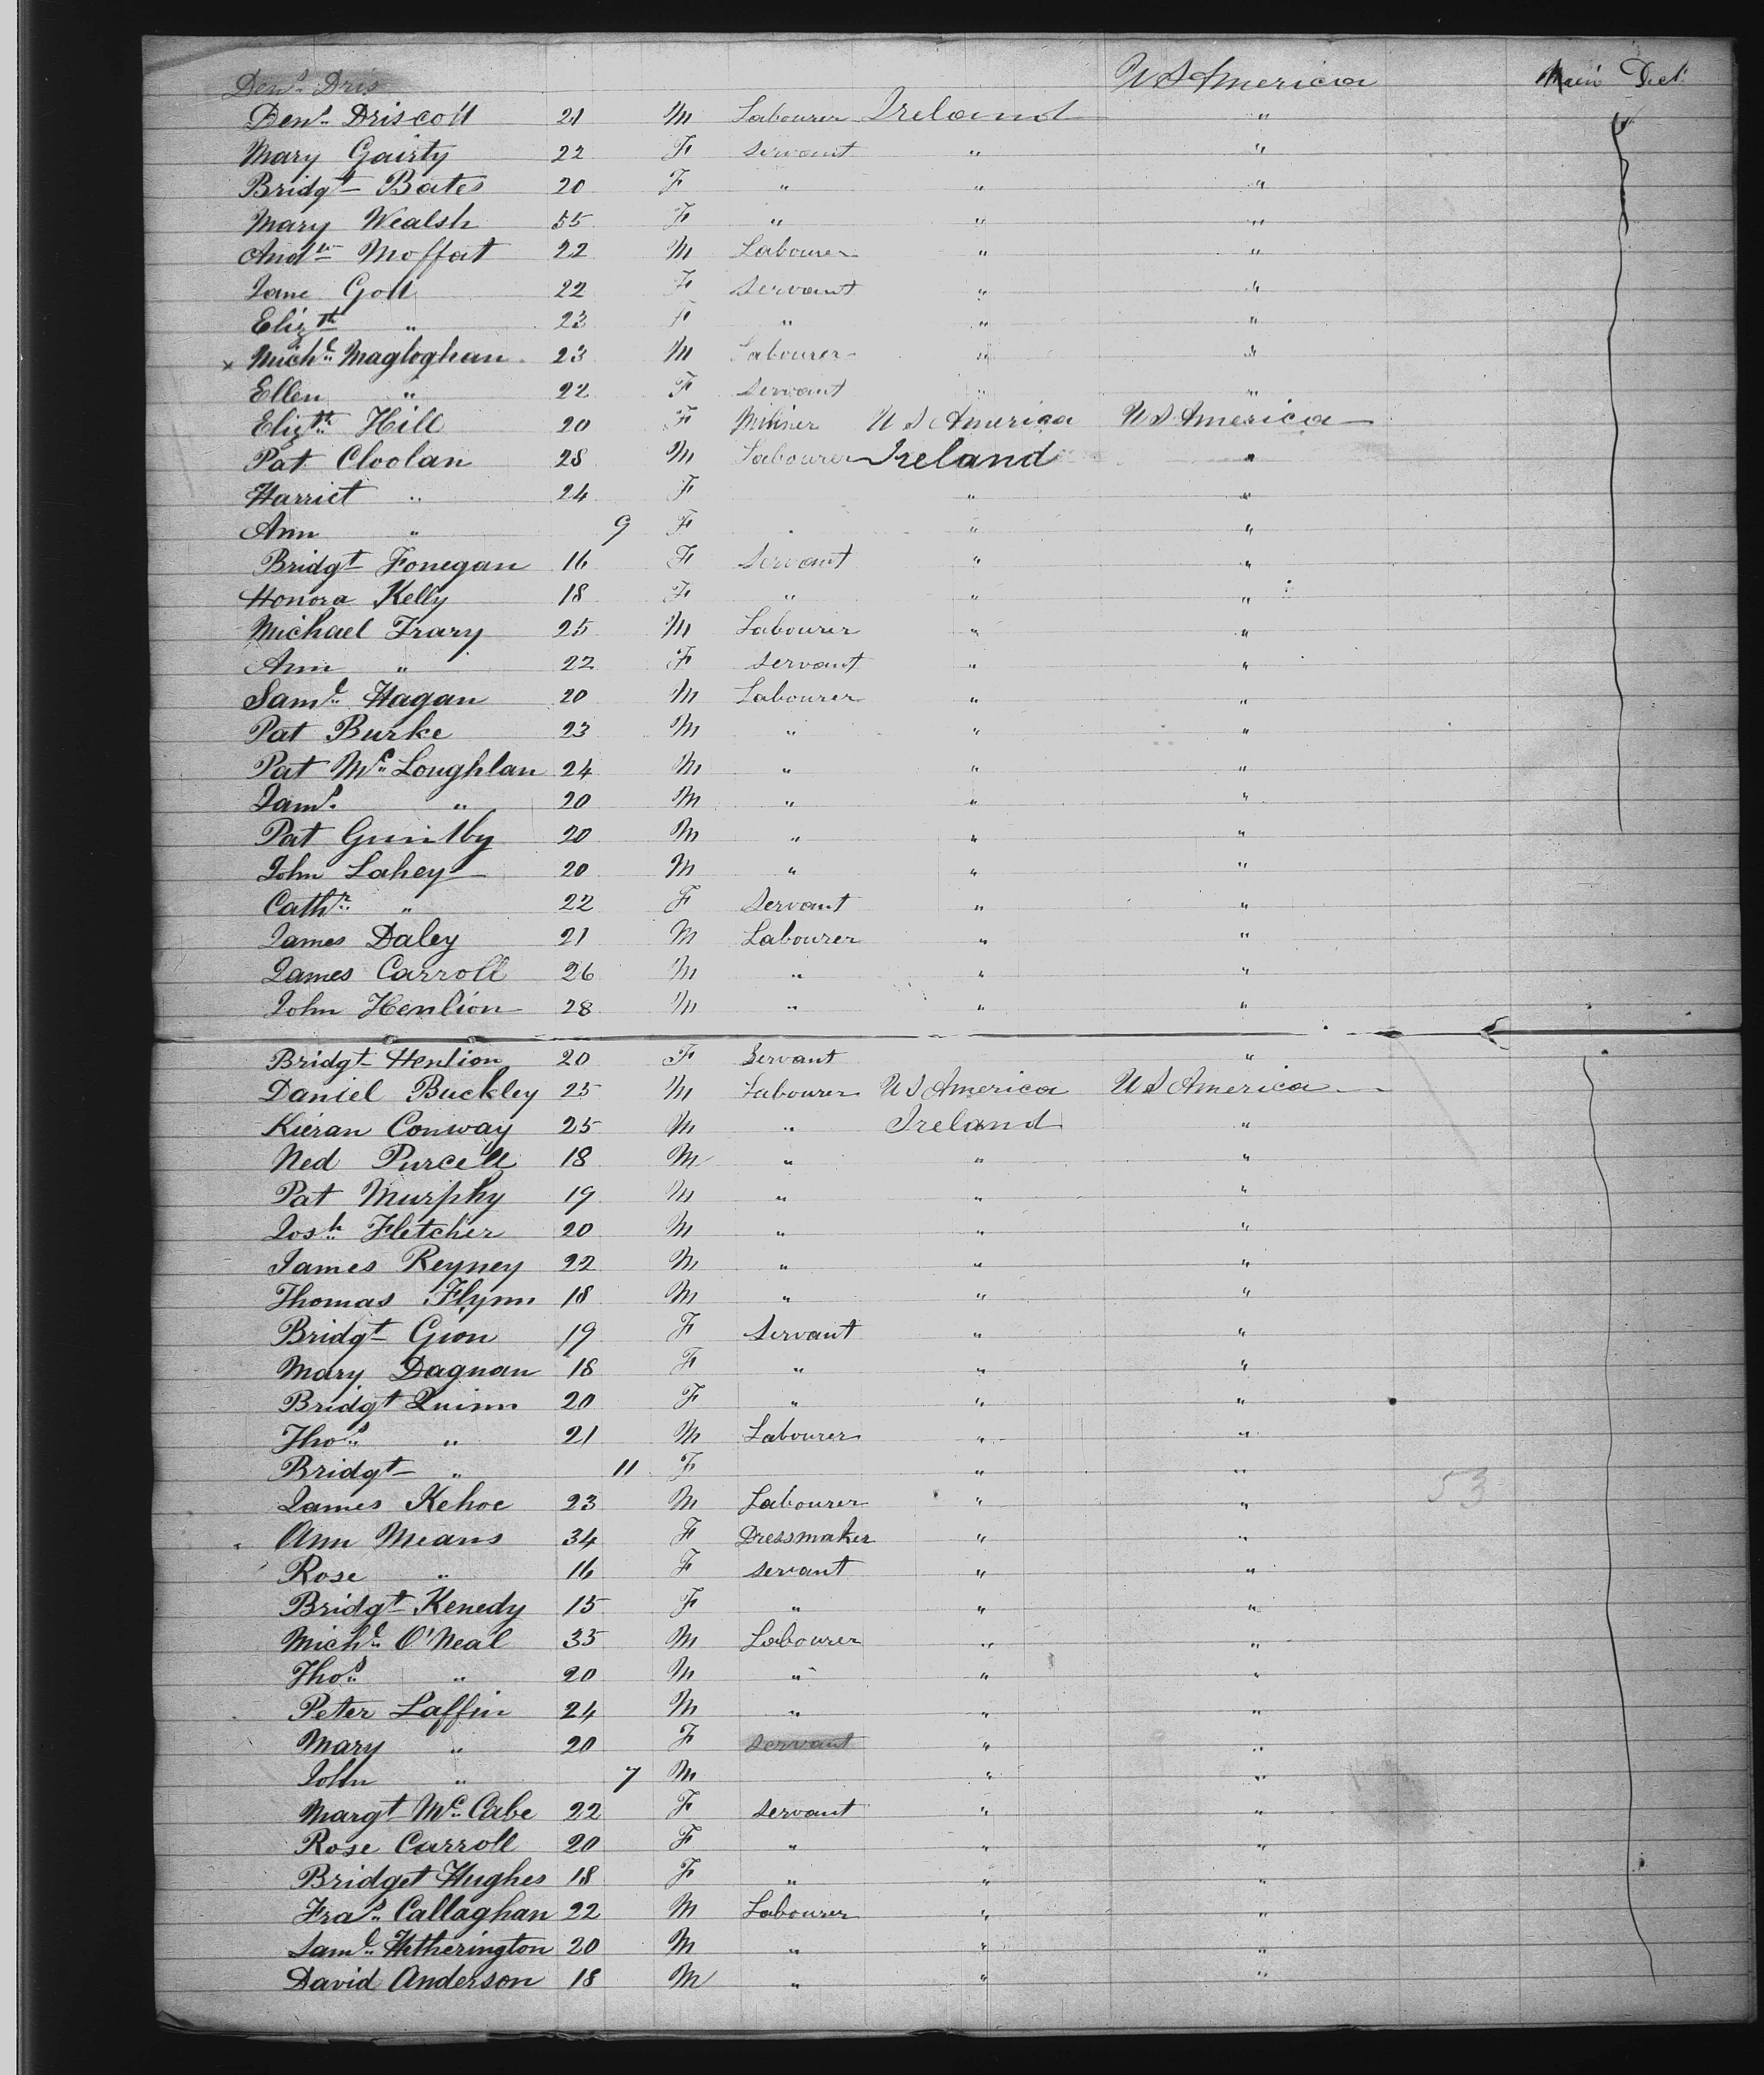 Den.s Dris U S America Main Deck
Den.s Driscoll 21 M Labourer Ireland "
Mary Gairty 22 F Servant " "
Bridgt Bates 20 F " " "
Mary Wealsh 55 F " " "
Andw Moffat 22 M Labourer " "
Jane Goll 22 F Servant " "
Elizth " 23 F " " "
x Michl Magloghan 23 M Labourer " "
Ellen " 22 F Servant " "
Elizth Hill 20 F Miliner U S America U S America
Pat Cloolan 28 M Labourer Ireland "
Harriet " 24 F " "
Ann " 9 F " "
Bridgt Fonegan 16 F Servant " "
Honora Kelly 18 F " " "
Michael Frary 25 M Labourer " "
Ann " 22 F Servant " "
Saml Hagan 20 M Labourer " "
Pat Burke 23 M " " "
Pat Mc Loughlan 24 M " " "
Jams " 20 M " " "
Pat 20 M " " "
John Lahey 20 M " " "
Cathr " 22 F Servant " "
James Daley 21 M Labourer " "
James Carroll 26 M " " "
John Henlion 28 M " " "
Bridgt Henlion 20 F Servant "
Daniel Buckley 25 M Labourer U S America U S America
Kieran Conway 25 M " Ireland "
Ned Purcell 18 M " " "
Pat Murphy 19 M " " "
Josh Fletcher 20 M " " "
James Reyney 22 M " " "
Thomas Flynn 18 M " " "
Bridgt Gion 19 F Servant " "
Mary Dagnan 18 F " " "
Bridgt Quinn 20 F " " "
Thos " 21 M Labourer " "
Bridgt " 11 F " "
James Kehoe 23 M Labourer " " 53
Ann Means 34 F Dressmaker " "
Rose " 16 F Servant " "
Bridgt Kenedy 15 F " " "
Michl O'Neal 35 M Labourer " "
Thos " 20 M " " "
Peter Laffin 24 M " " "
Mary " 20 F Servant " "
John " 7 M " "
Margt Mc Cabe 22 F Servant " "
Rose Carroll 20 F " " "
Bridget Hughes 18 F " " "
Fras Callaghan 22 M Labourer " "
Saml Hetherington 20 M " " "
David Anderson 18 M " " "